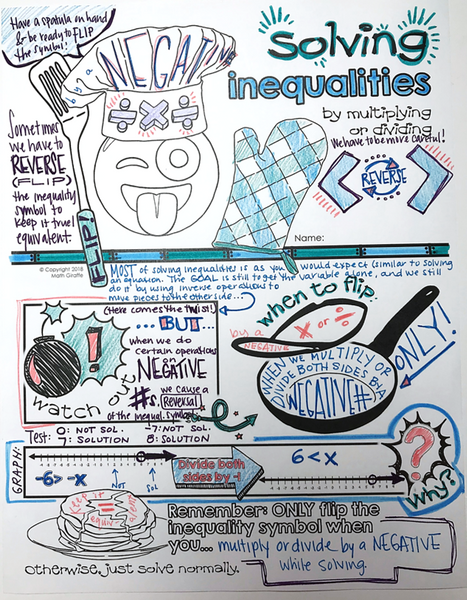 Have a spatula on hand
& be ready to FLIP
the symbol!
by a NEGATIVE
÷ × ÷
solving
inequalities
by multiplying
or dividing
We have to be more careful!
REVERSE
Sometimes
we have to
REVERSE
(FLIP)
the inequality
symbol to
keep it true/
equivalent.
FLIP!
Name:
© Copyright 2018
Math Giraffe
MOST of solving inequalities is as you would expect (similar to solving
an equation. The GOAL is still to get the variable alone, and we still
do it by using inverse operations to
move pieces to the other side...
(here comes the twist!)
...BUT...
when we do
certain operations
NEGATIVE
#s, we cause a
(reversal)
of the inequal. symbol
watch out
!
when to flip:
by a
NEGATIVE
× or ÷
WHEN WE MULTIPLY OR
DIVIDE BOTH SIDES BY A
(NEGATIVE #)
ONLY!
Test: 0: NOT SOL. -7: NOT SOL.
7: SOLUTION 8: SOLUTION
GRAPH:
-6 > -x
NOT
SOL
Divide both
sides by -1
6 < x
?
Why?
keep it
=
equivalent
Remember: ONLY flip the
inequality symbol when
you... multiply or divide by a NEGATIVE
while solving.
otherwise, just solve normally.